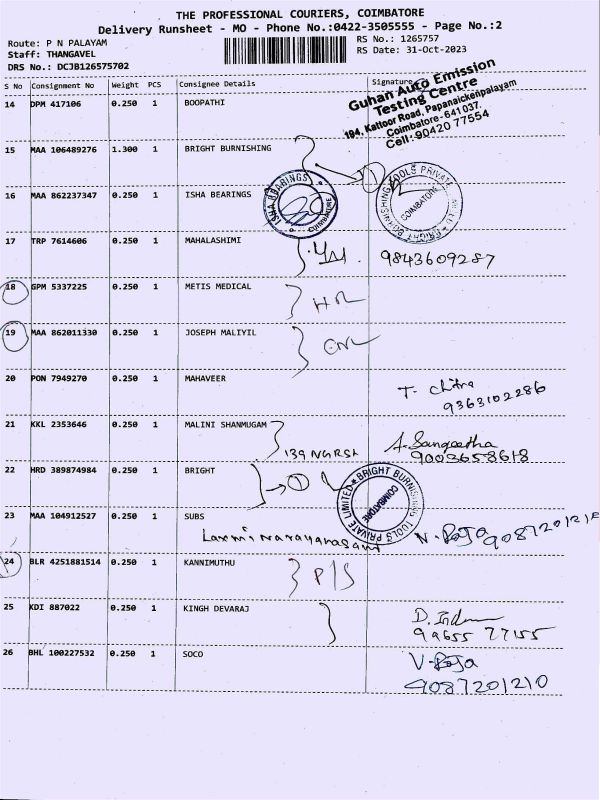 THE PROFESSIONAL COURIERS, COIMBATORE
Delivery Runsheet - MO - Phone No.:0422-3505555 - Page No.:2
Route: P N PALAYAM
RS No.: 1265757
Staff: THANGAVEL
RS Date: 31-Oct-2023
DRS No.: DCJB126575702
S No Consignment No Weight PCS Consignee Details Signature
14 DPM 417106 0.250 1 BOOPATHI
Guhan Auto Emission
Testing Centre
194, Kattoor Road, Papanaickenpalayam
Coimbatore-641 037.
Cell: 90420 77554
15 MAA 106489276 1.300 1 BRIGHT BURNISHING
BRIGHT BURNISHING TOOLS PRIVATE
COIMBATORE
16 MAA 862237347 0.250 1 ISHA BEARINGS
ISHA BEARINGS
COIMBATORE
17 TRP 7614606 0.250 1 MAHALASHIMI
9843609287
18 GPM 5337225 0.250 1 METIS MEDICAL
19 MAA 862011330 0.250 1 JOSEPH MALIYIL
20 PON 7949270 0.250 1 MAHAVEER
T. Chitra
9363102286
21 KKL 2353646 0.250 1 MALINI SHANMUGAM
A. Sangeetha
9003658618
22 HRD 389874984 0.250 1 BRIGHT
1
BRIGHT BURNISHING TOOLS PRIVATE LIMITED
COIMBATORE
23 MAA 104912527 0.250 1 SUBS
24 BLR 4251881514 0.250 1 KANNIMUTHU
P/S
25 KDI 887022 0.250 1 KINGH DEVARAJ
99655 77155
26 BHL 100227532 0.250 1 SOCO
V-Raja
9087201210